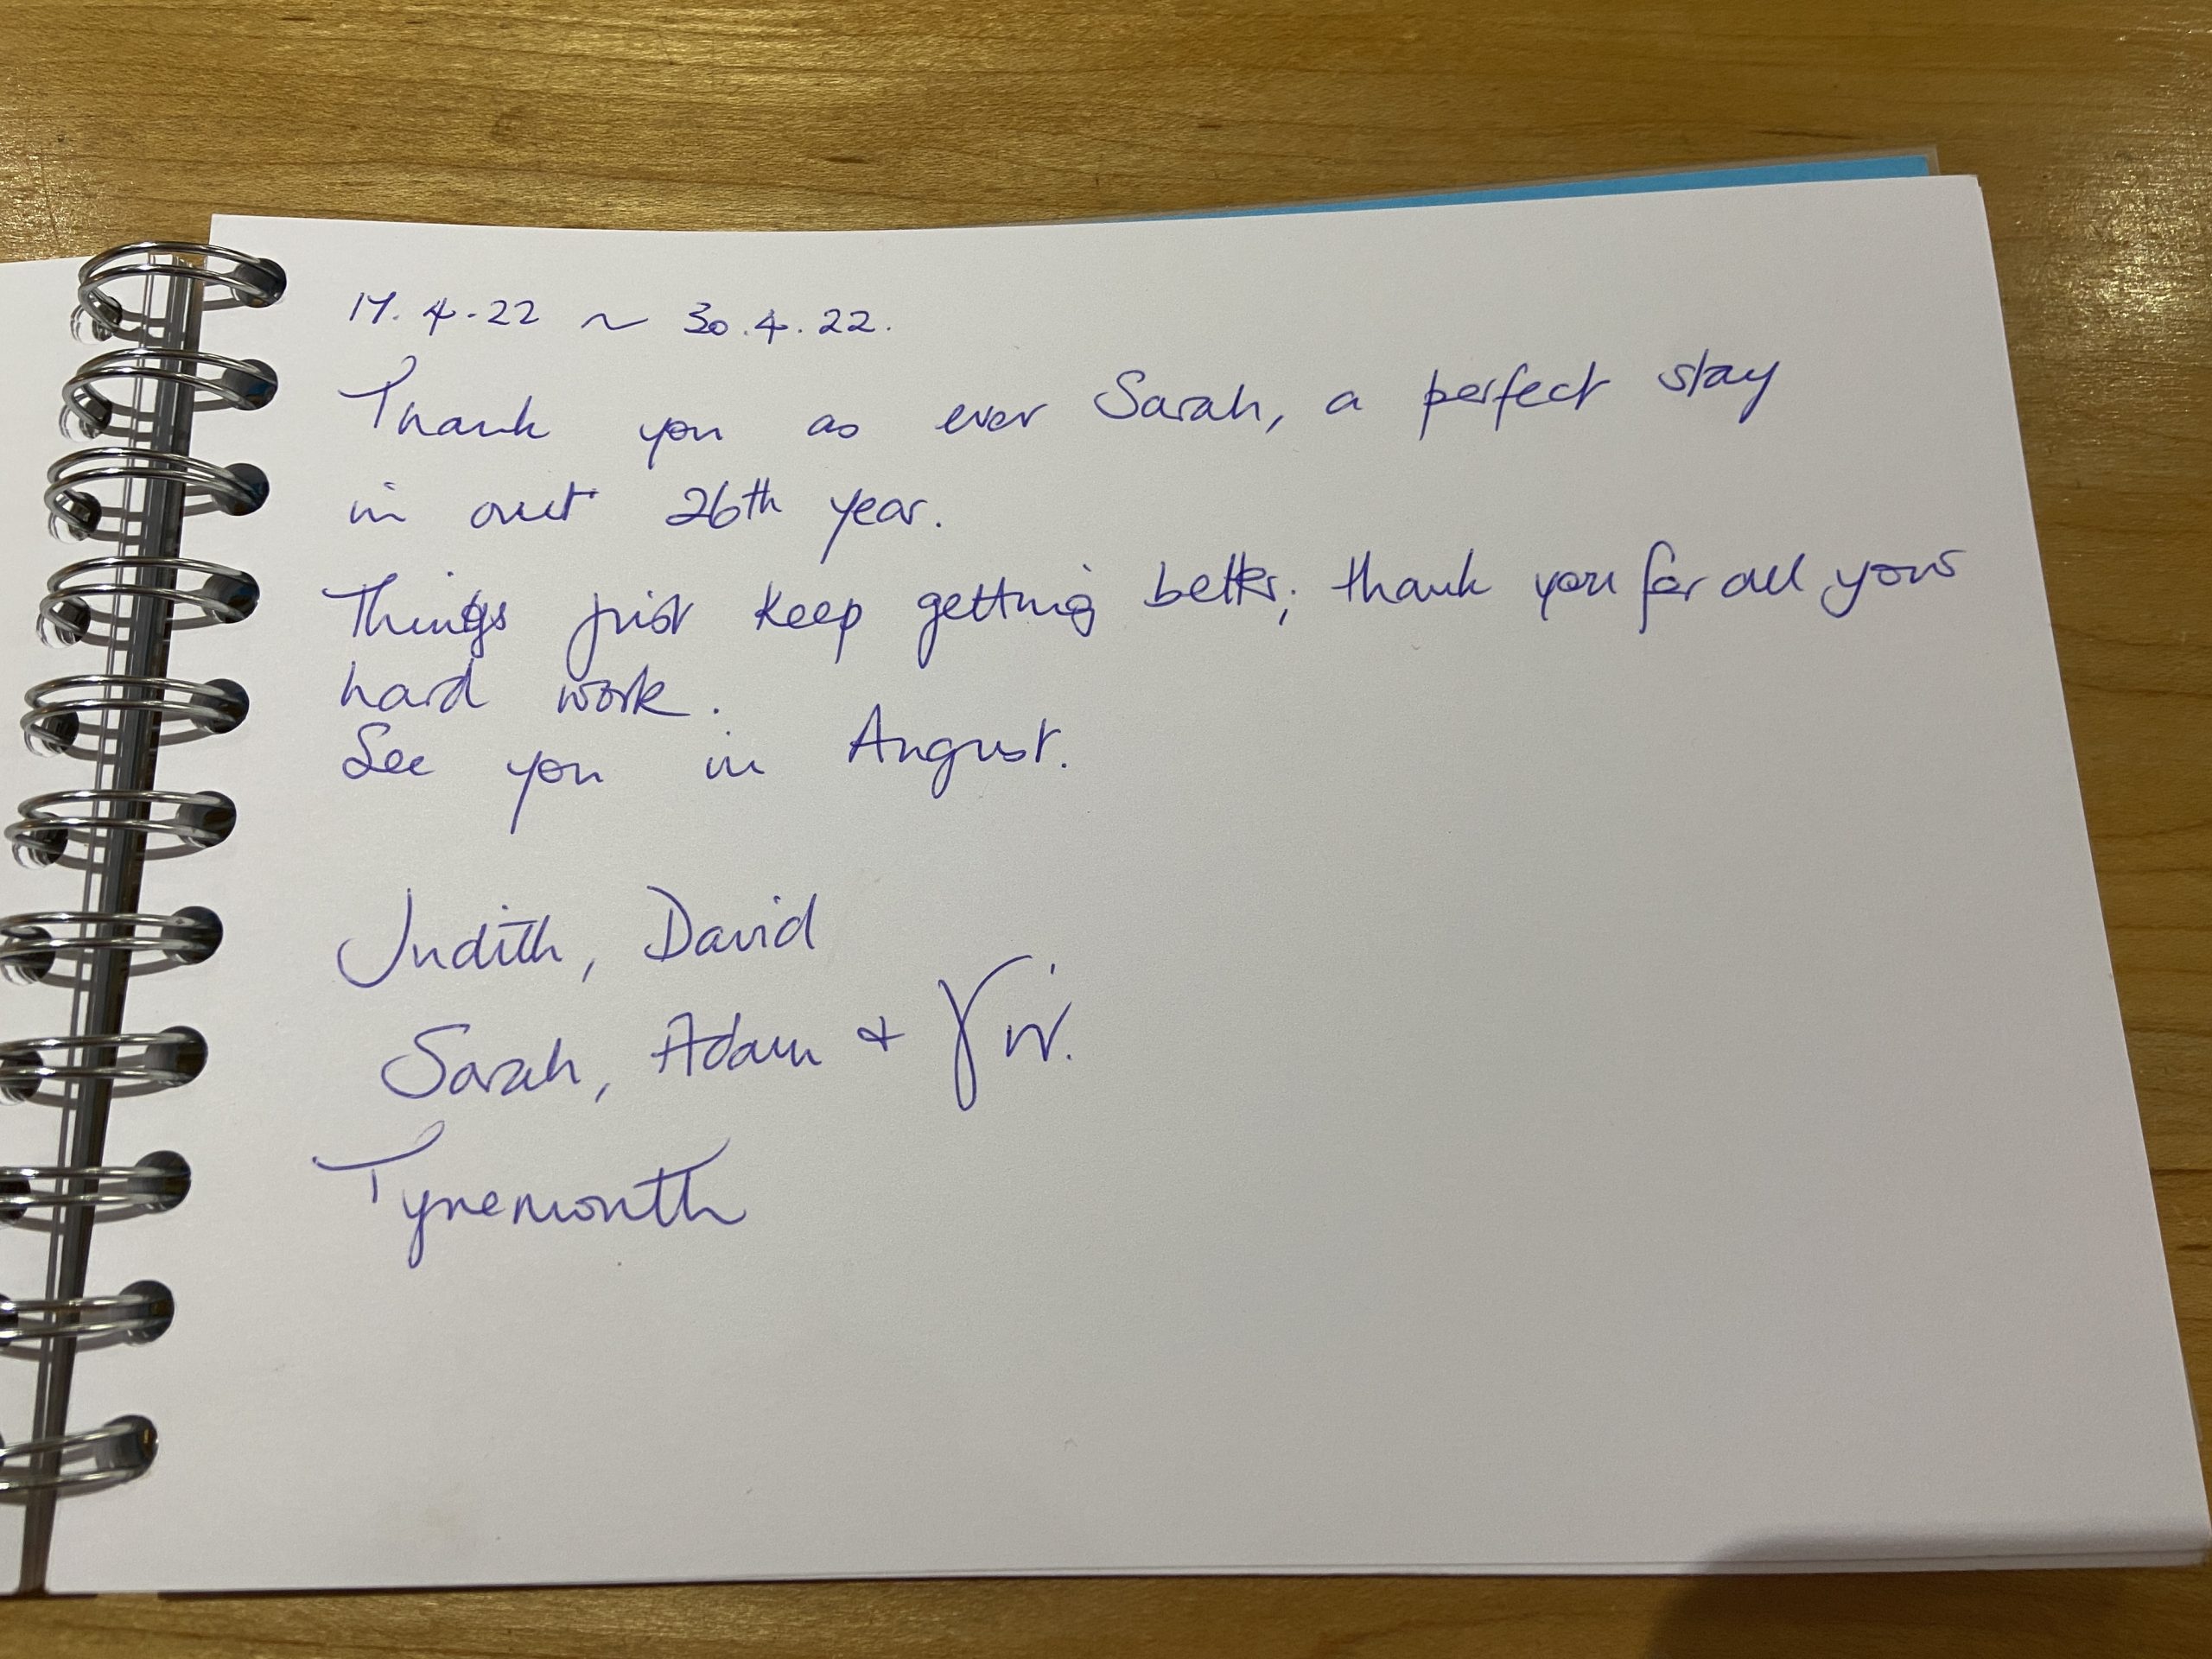 17.4.22 ~ 30.4.22.
Thank you as ever Sarah, a perfect stay
in our 26th year.
Things just keep getting better; thank you for all your
hard work.
See you in August.
Judith, David
Sarah, Adam + Viv.
Tynemouth